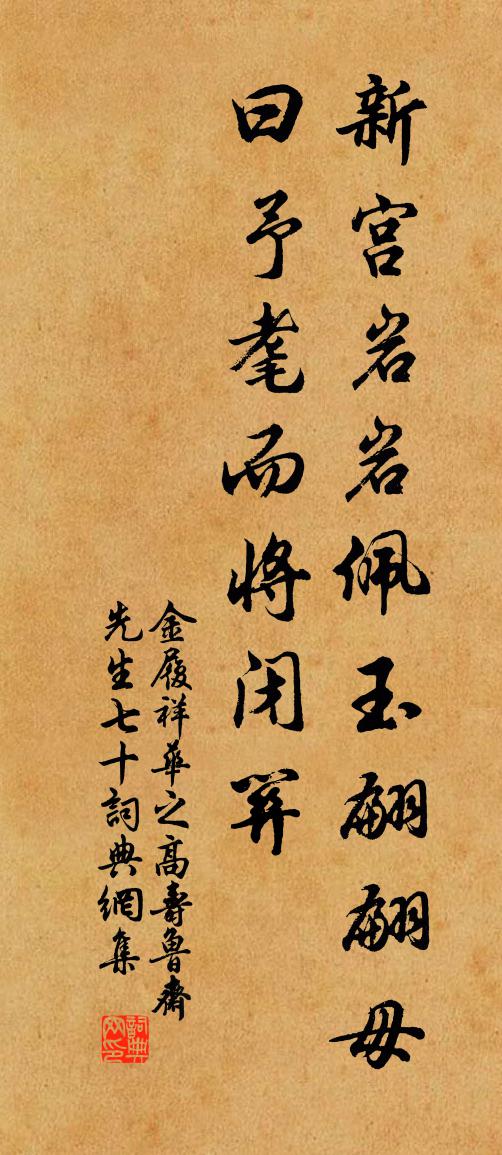 新宫岩岩佩玉翩翩毋
曰予耄而将闭关
金履祥華之高壽魯齋
先生七十詞典網集
詞典
网印